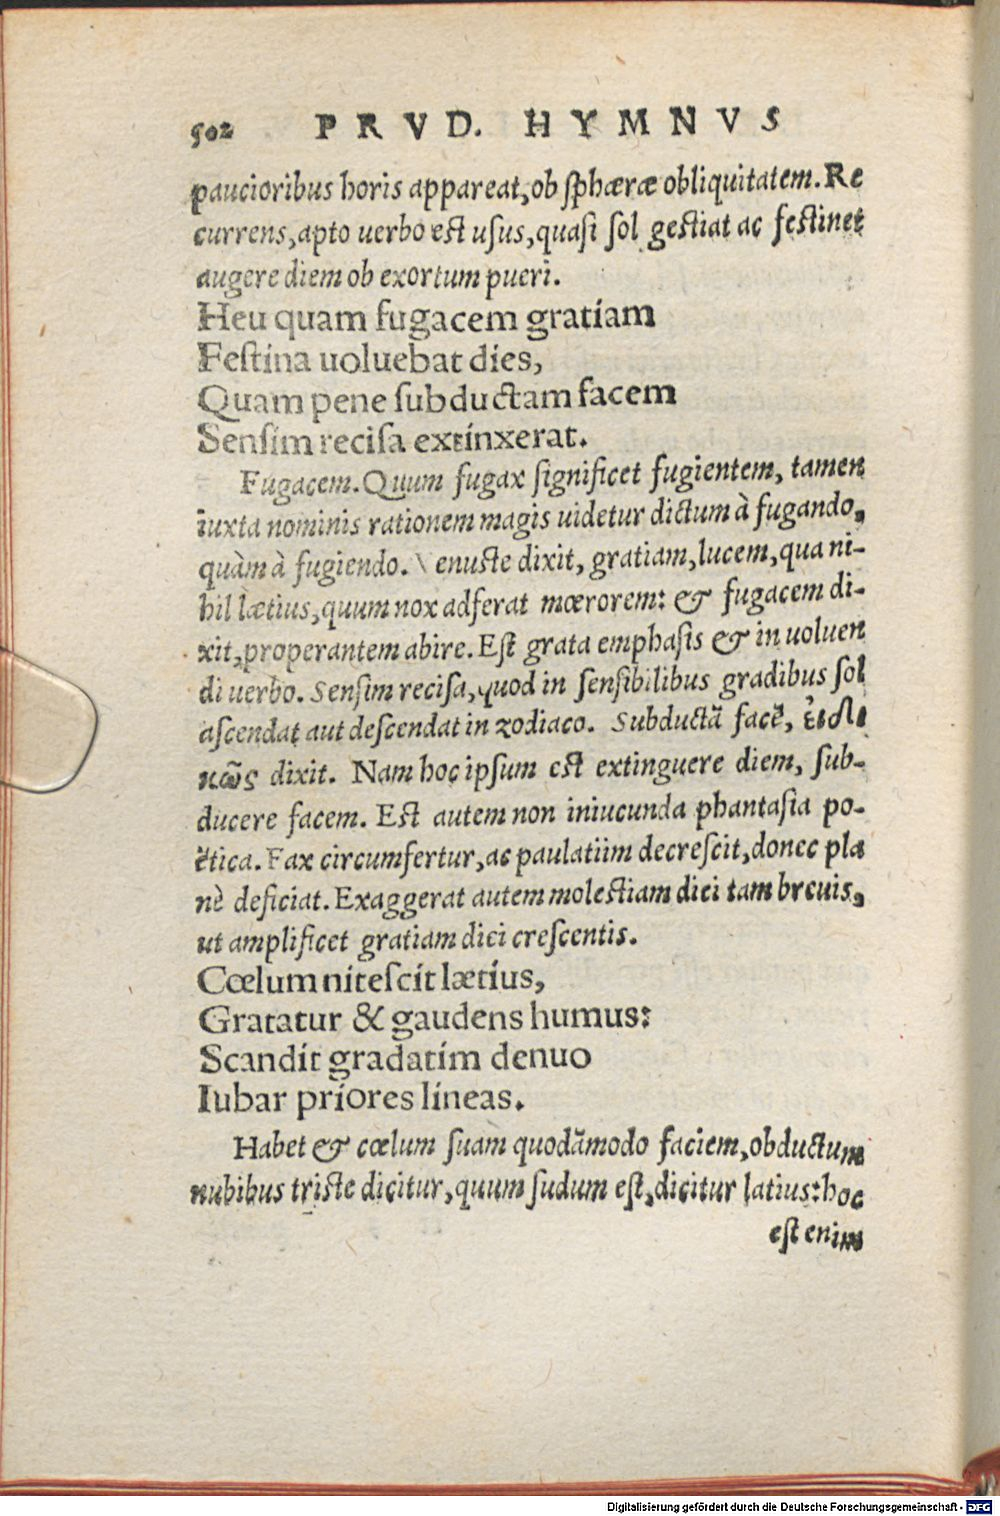 502 PRVD. HYMNVS
paucioribus horis appareat, ob sphæræ obliquitatem. Re
currens, apto uerbo est usus, quasi sol gestiat ac festinet
augere diem ob exortum pueri.
Heu quam fugacem gratiam
Festina uoluebat dies,
Quam pene subductam facem
Sensim recisa extinxerat.
Fugacem. Quum fugax significet fugientem, tamen
iuxta nominis rationem magis uidetur dictum à fugando,
quàm à fugiendo. Venuste dixit, gratiam, lucem, qua ni-
hil lætius, quum nox adferat mœrorem: & fugacem di-
xit, properantem abire. Est grata emphasis & in uoluen
di uerbo. Sensim recisa, quod in sensibilibus gradibus sol
ascendat aut descendat in zodiaco. Subductã facẽ, εἰδι
κῶς dixit. Nam hoc ipsum est extinguere diem, sub-
ducere facem. Est autem non iniucunda phantasia po-
ëtica. Fax circumfertur, ac paulatiim decrescit, donec pla
nè deficiat. Exaggerat autem molestiam diei tam breuis,
ut amplificet gratiam diei crescentis.
Cœlum nitescit lætius,
Gratatur & gaudens humus:
Scandit gradatim denuo
Iubar priores lineas.
Habet & cœlum suam quodãmodo faciem, obductum
nubibus triste dicitur, quum sudum est, dicitur latius: hoc
est enim
Digitalisierung gefördert durch die Deutsche Forschungsgemeinschaft - DFG